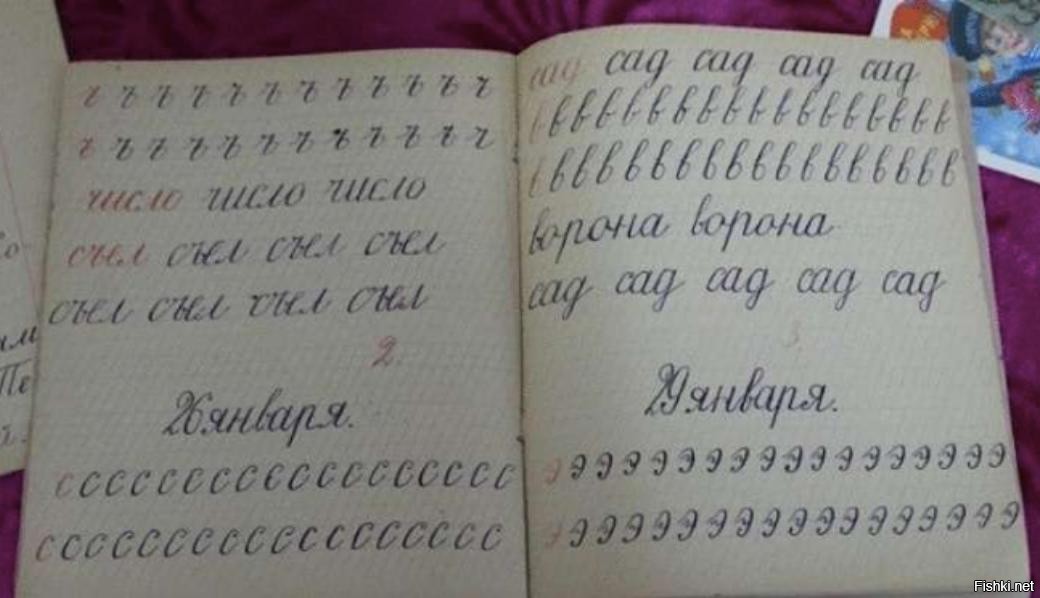 ъ ъ ъ ъ ъ ъ ъ ъ ъ ъ ъ ъ
ъ ъ ъ ъ ъ ъ ъ ъ ъ ъ ъ ъ
число число число
съел съел съел съел
съел съел съел съел
2.
26 января.
с с с с с с с с с с с с с с с с с с
с с с с с с с с с с с с с с с с с с
сад сад сад сад сад
в в в в в в в в в в в в в в в в в
в в в в в в в в в в в в в в в в в
ворона ворона
сад сад сад сад сад
3.
29 января.
э э э э э э э э э э э э э э э э э э
э э э э э э э э э э э э э э э э э э
Fishki.net